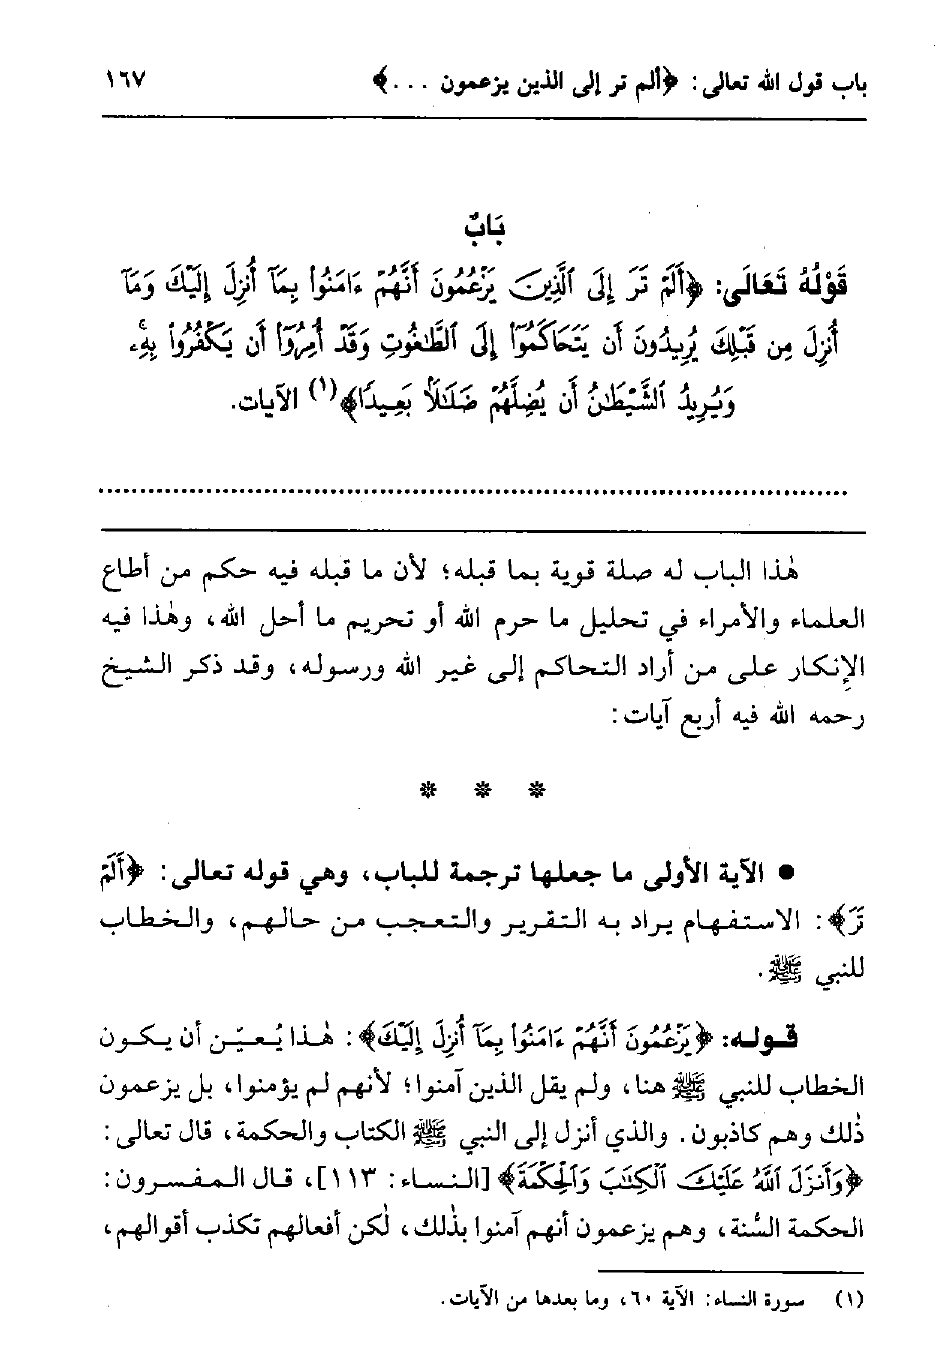 باب قول الله تعالى: ﴿ألم تر إلى الذين يزعمون ...﴾ ١٦٧
بَابٌ
قَوْلُهُ تَعَالَى: ﴿أَلَمْ تَرَ إِلَى ٱلَّذِينَ يَزْعُمُونَ أَنَّهُمْ ءَامَنُوا۟ بِمَآ أُنزِلَ إِلَيْكَ وَمَآ
أُنزِلَ مِن قَبْلِكَ يُرِيدُونَ أَن يَتَحَاكَمُوٓا۟ إِلَى ٱلطَّٰغُوتِ وَقَدْ أُمِرُوٓا۟ أَن يَكْفُرُوا۟ بِهِۦ
وَيُرِيدُ ٱلشَّيْطَٰنُ أَن يُضِلَّهُمْ ضَلَٰلًۢا بَعِيدًا﴾(١) الآيات.
................................................................................
هٰذا الباب له صلة قوية بما قبله؛ لأن ما قبله فيه حكم من أطاع
العلماء والأمراء في تحليل ما حرم الله أو تحريم ما أحل الله، وهٰذا فيه
الإنكار على من أراد التحاكم إلى غير الله ورسوله، وقد ذكر الشيخ
رحمه الله فيه أربع آيات:
* * *
● الآية الأولى ما جعلها ترجمة للباب، وهي قوله تعالى: ﴿أَلَمْ
تَرَ﴾: الاستفهام يراد به التقرير والتعجب من حالهم، والخطاب
للنبي ﷺ.
قوله: ﴿يَزْعُمُونَ أَنَّهُمْ ءَامَنُوا۟ بِمَآ أُنزِلَ إِلَيْكَ﴾: هٰذا يُعيّن أن يكون
الخطاب للنبي ﷺ هنا، ولم يقل الذين آمنوا؛ لأنهم لم يؤمنوا، بل يزعمون
ذٰلك وهم كاذبون. والذي أنزل إلى النبي ﷺ الكتاب والحكمة، قال تعالى:
﴿وَأَنزَلَ ٱللَّهُ عَلَيْكَ ٱلْكِتَٰبَ وَٱلْحِكْمَةَ﴾ [النساء: ١١٣]، قال المفسرون:
الحكمة السُّنة، وهم يزعمون أنهم آمنوا بذٰلك، لٰكن أفعالهم تكذب أقوالهم،
(١) سورة النساء: الآية ٦٠، وما بعدها من الآيات.